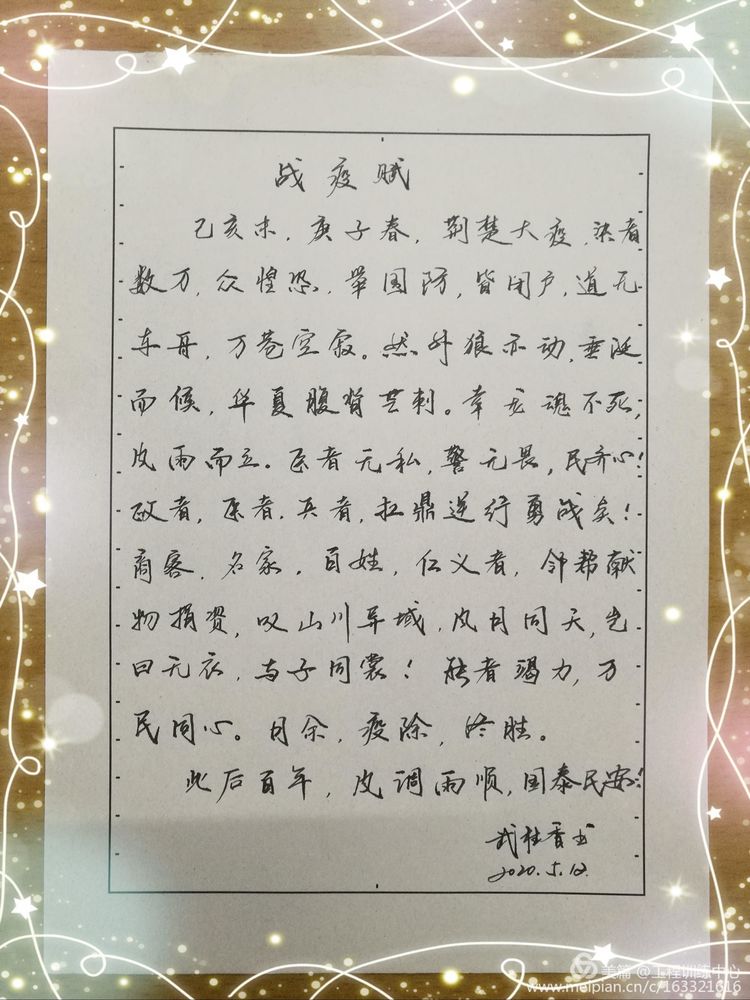 战疫赋
乙亥末，庚子春，荆楚大疫，染者
数万，众惶恐，举国防，皆闭户，道无
车舟，万巷空寂。然外狼亦动，垂涎
而候，华夏腹背芒刺。幸龙魂不死，
风雨而立。医者无私，警无畏，民齐心！
政者，医者，兵者，扛鼎逆行勇战矣！
商客，名家，百姓，仁义者，邻邦献
物捐资，叹山川异域，风月同天，岂
曰无衣，与子同裳！能者竭力，万
民同心。月余，疫除，终胜。
此后百年，风调雨顺，国泰民安！
武桂香书
2020.5.12
美篇 @工程训练中心
www.meipian.cn/c/163321616